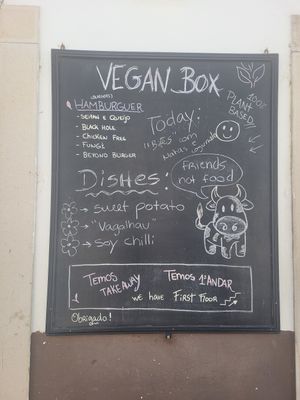 VEGAN BOX
100%
PLANT
BASED
HAMBURGUER
- BLACK HOLE
- CHICKEN FREE
- FUNGI
- BEYOND BURGER
Today:
"Bifes" com
Natas e cogumelos
DISHES:
friends
not food
→ sweet potato
→ "Vagalhau"
→ soy chilli
TEMOS
TAKEAWAY
TEMOS 1º ANDAR
WE HAVE FIRST FLOOR
Obrigado!